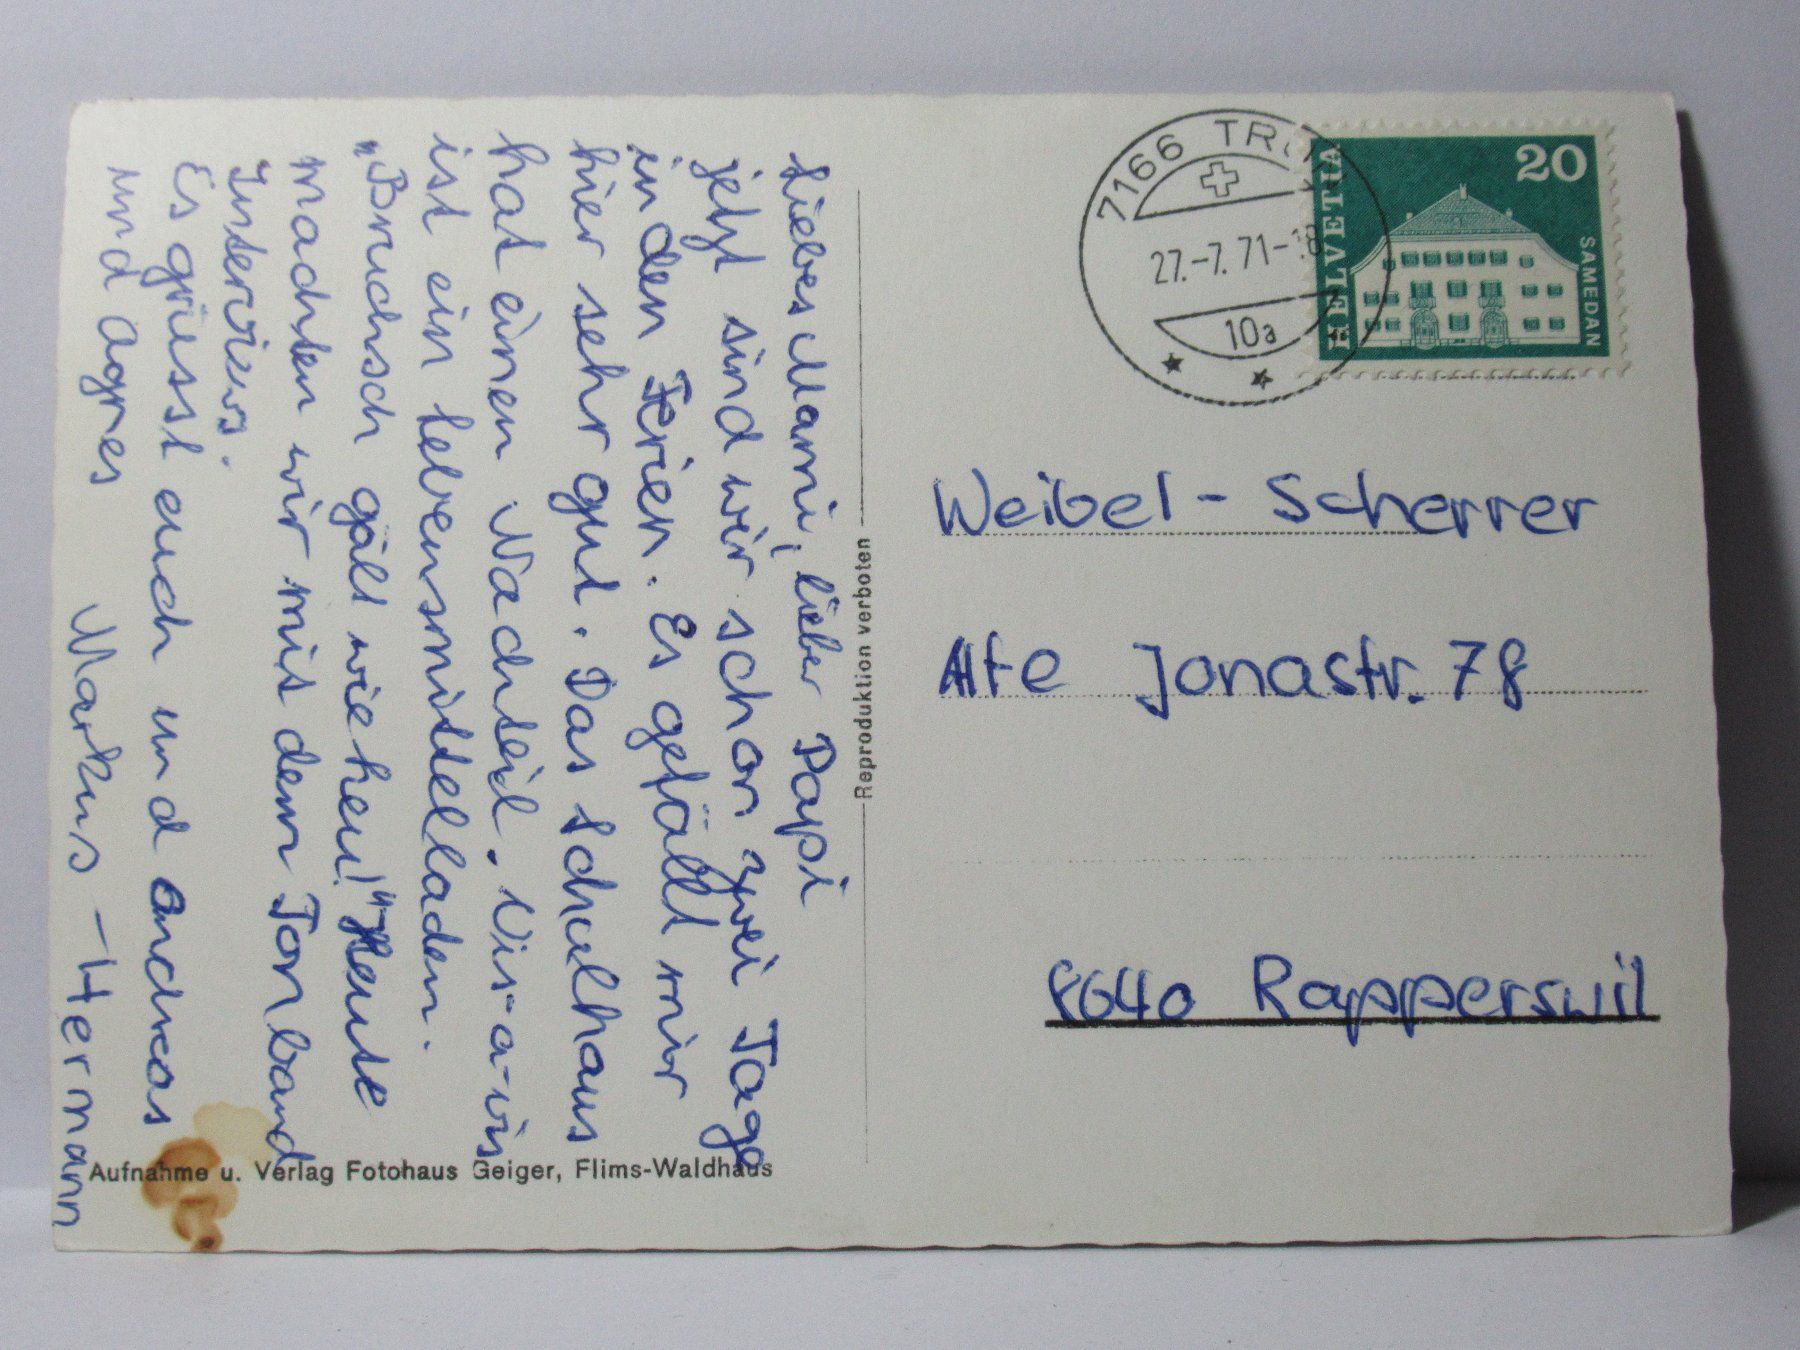 Liebes Mami, lieber Papi
jetzt sind wir schon zwei Tage
in den Ferien. Es gefällt mir
hier sehr gut. Das Schulhaus
hat einen Nachteil. Vis-a-vis
ist ein Lebensmittelladen.
"Bruchsch gäll wie heu!" Heute
machten wir mit dem Tonband
Interviews.
Es grüsst euch und Andreas
und Agnes Markus-Hermann
Aufnahme u. Verlag Fotohaus Geiger, Flims-Waldhaus
Reproduktion verboten
7166
27.-7. 71-18
10a
HELVETIA
20
SAMEDAN
Weibel-Scherrer
Alte Jonastr. 78
8640 Rapperswil